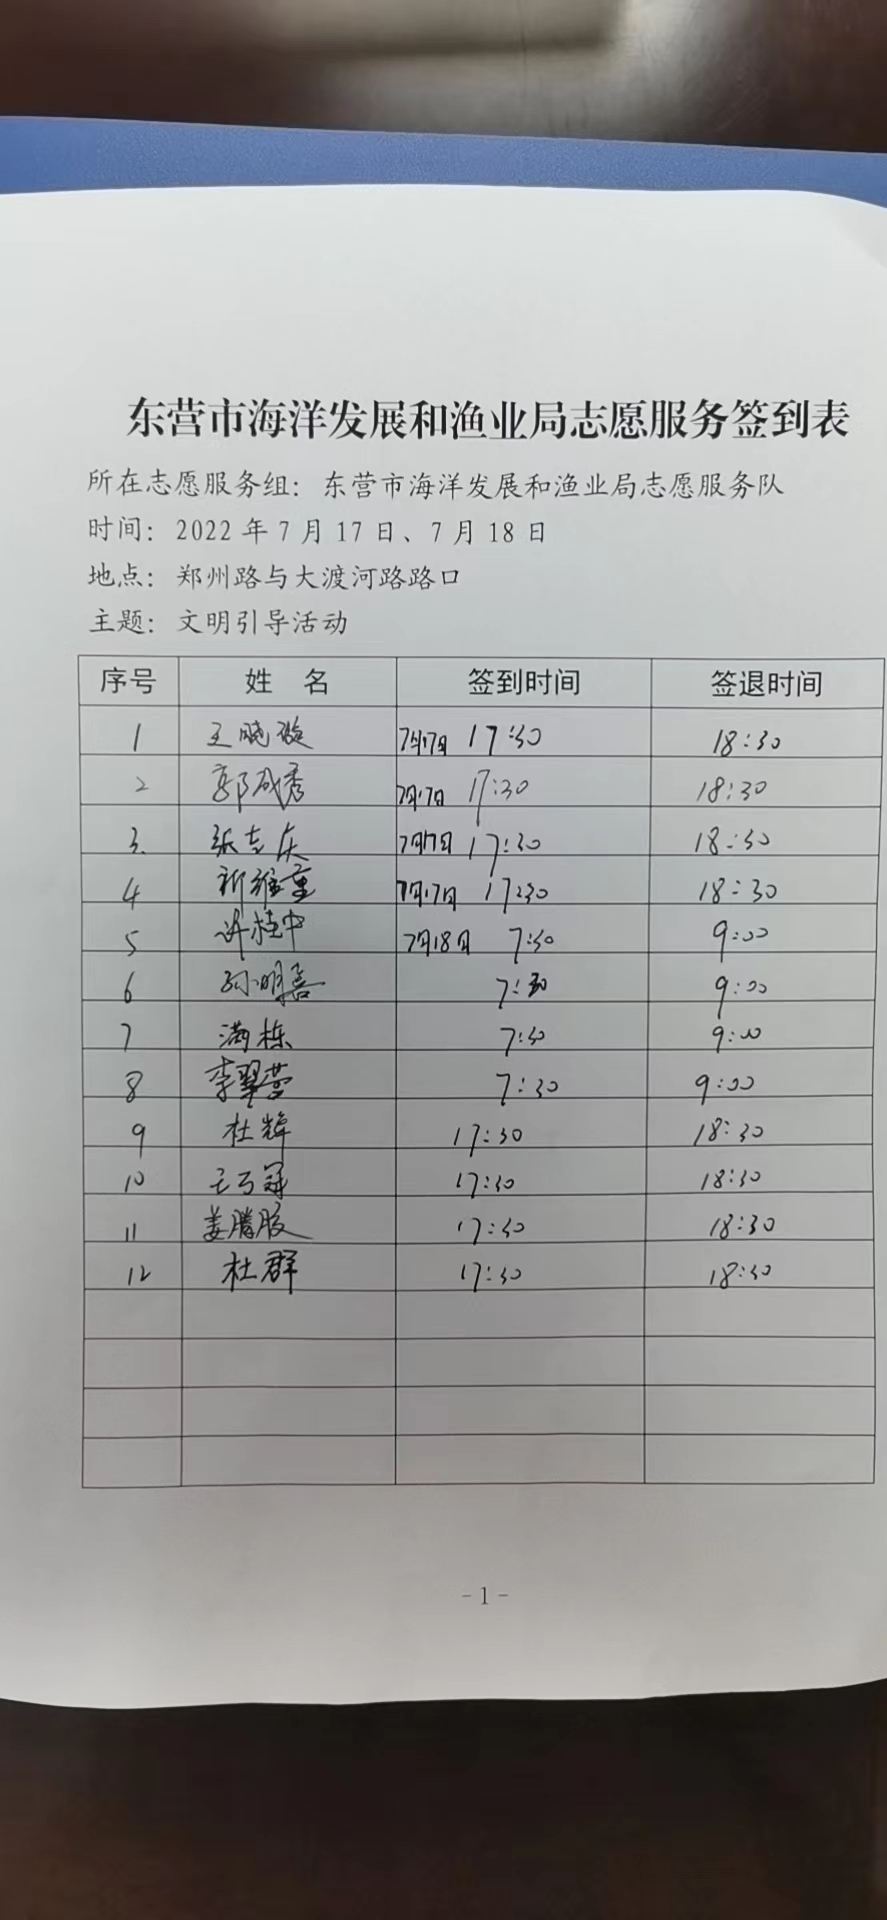 东营市海洋发展和渔业局志愿服务签到表
所在志愿服务组：东营市海洋发展和渔业局志愿服务队
时间：2022年7月17日、7月18日
地点：郑州路与大渡河路路口
主题：文明引导活动
序号 姓 名 签到时间 签退时间
1 王晓璇 7月17日 17:30 18:30
2 郭成秀 7月17日 17:30 18:30
3. 张志庆 7月17日 17:30 18:30
4 靳维重 7月17日 17:30 18:30
5 许桂中 7月18日 7:30 9:00
6 孙明喜 7:30 9:00
7 满栋 7:30 9:00
8 李翠营 7:30 9:00
9 杜辉 17:30 18:30
10 17:30 18:30
11 姜腾 17:30 18:30
12 杜群 17:30 18:30
- 1 -